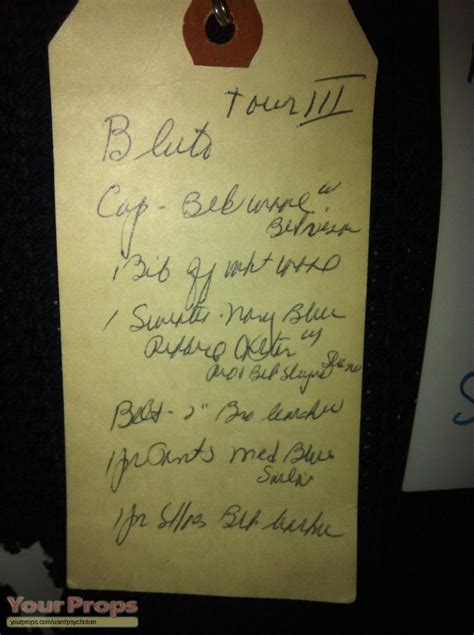 Tour III
Bluto
Cap - Blk wool w/
Blk visor
1 Bib off wht wool
1 Sweater - Navy Blue
w/
Red & Blk
Belt - 2" Bro leather
1 pr Pants Med Blue
1 pr Shoes Blk leather
Your Props
yourprops.com/user/psychotom